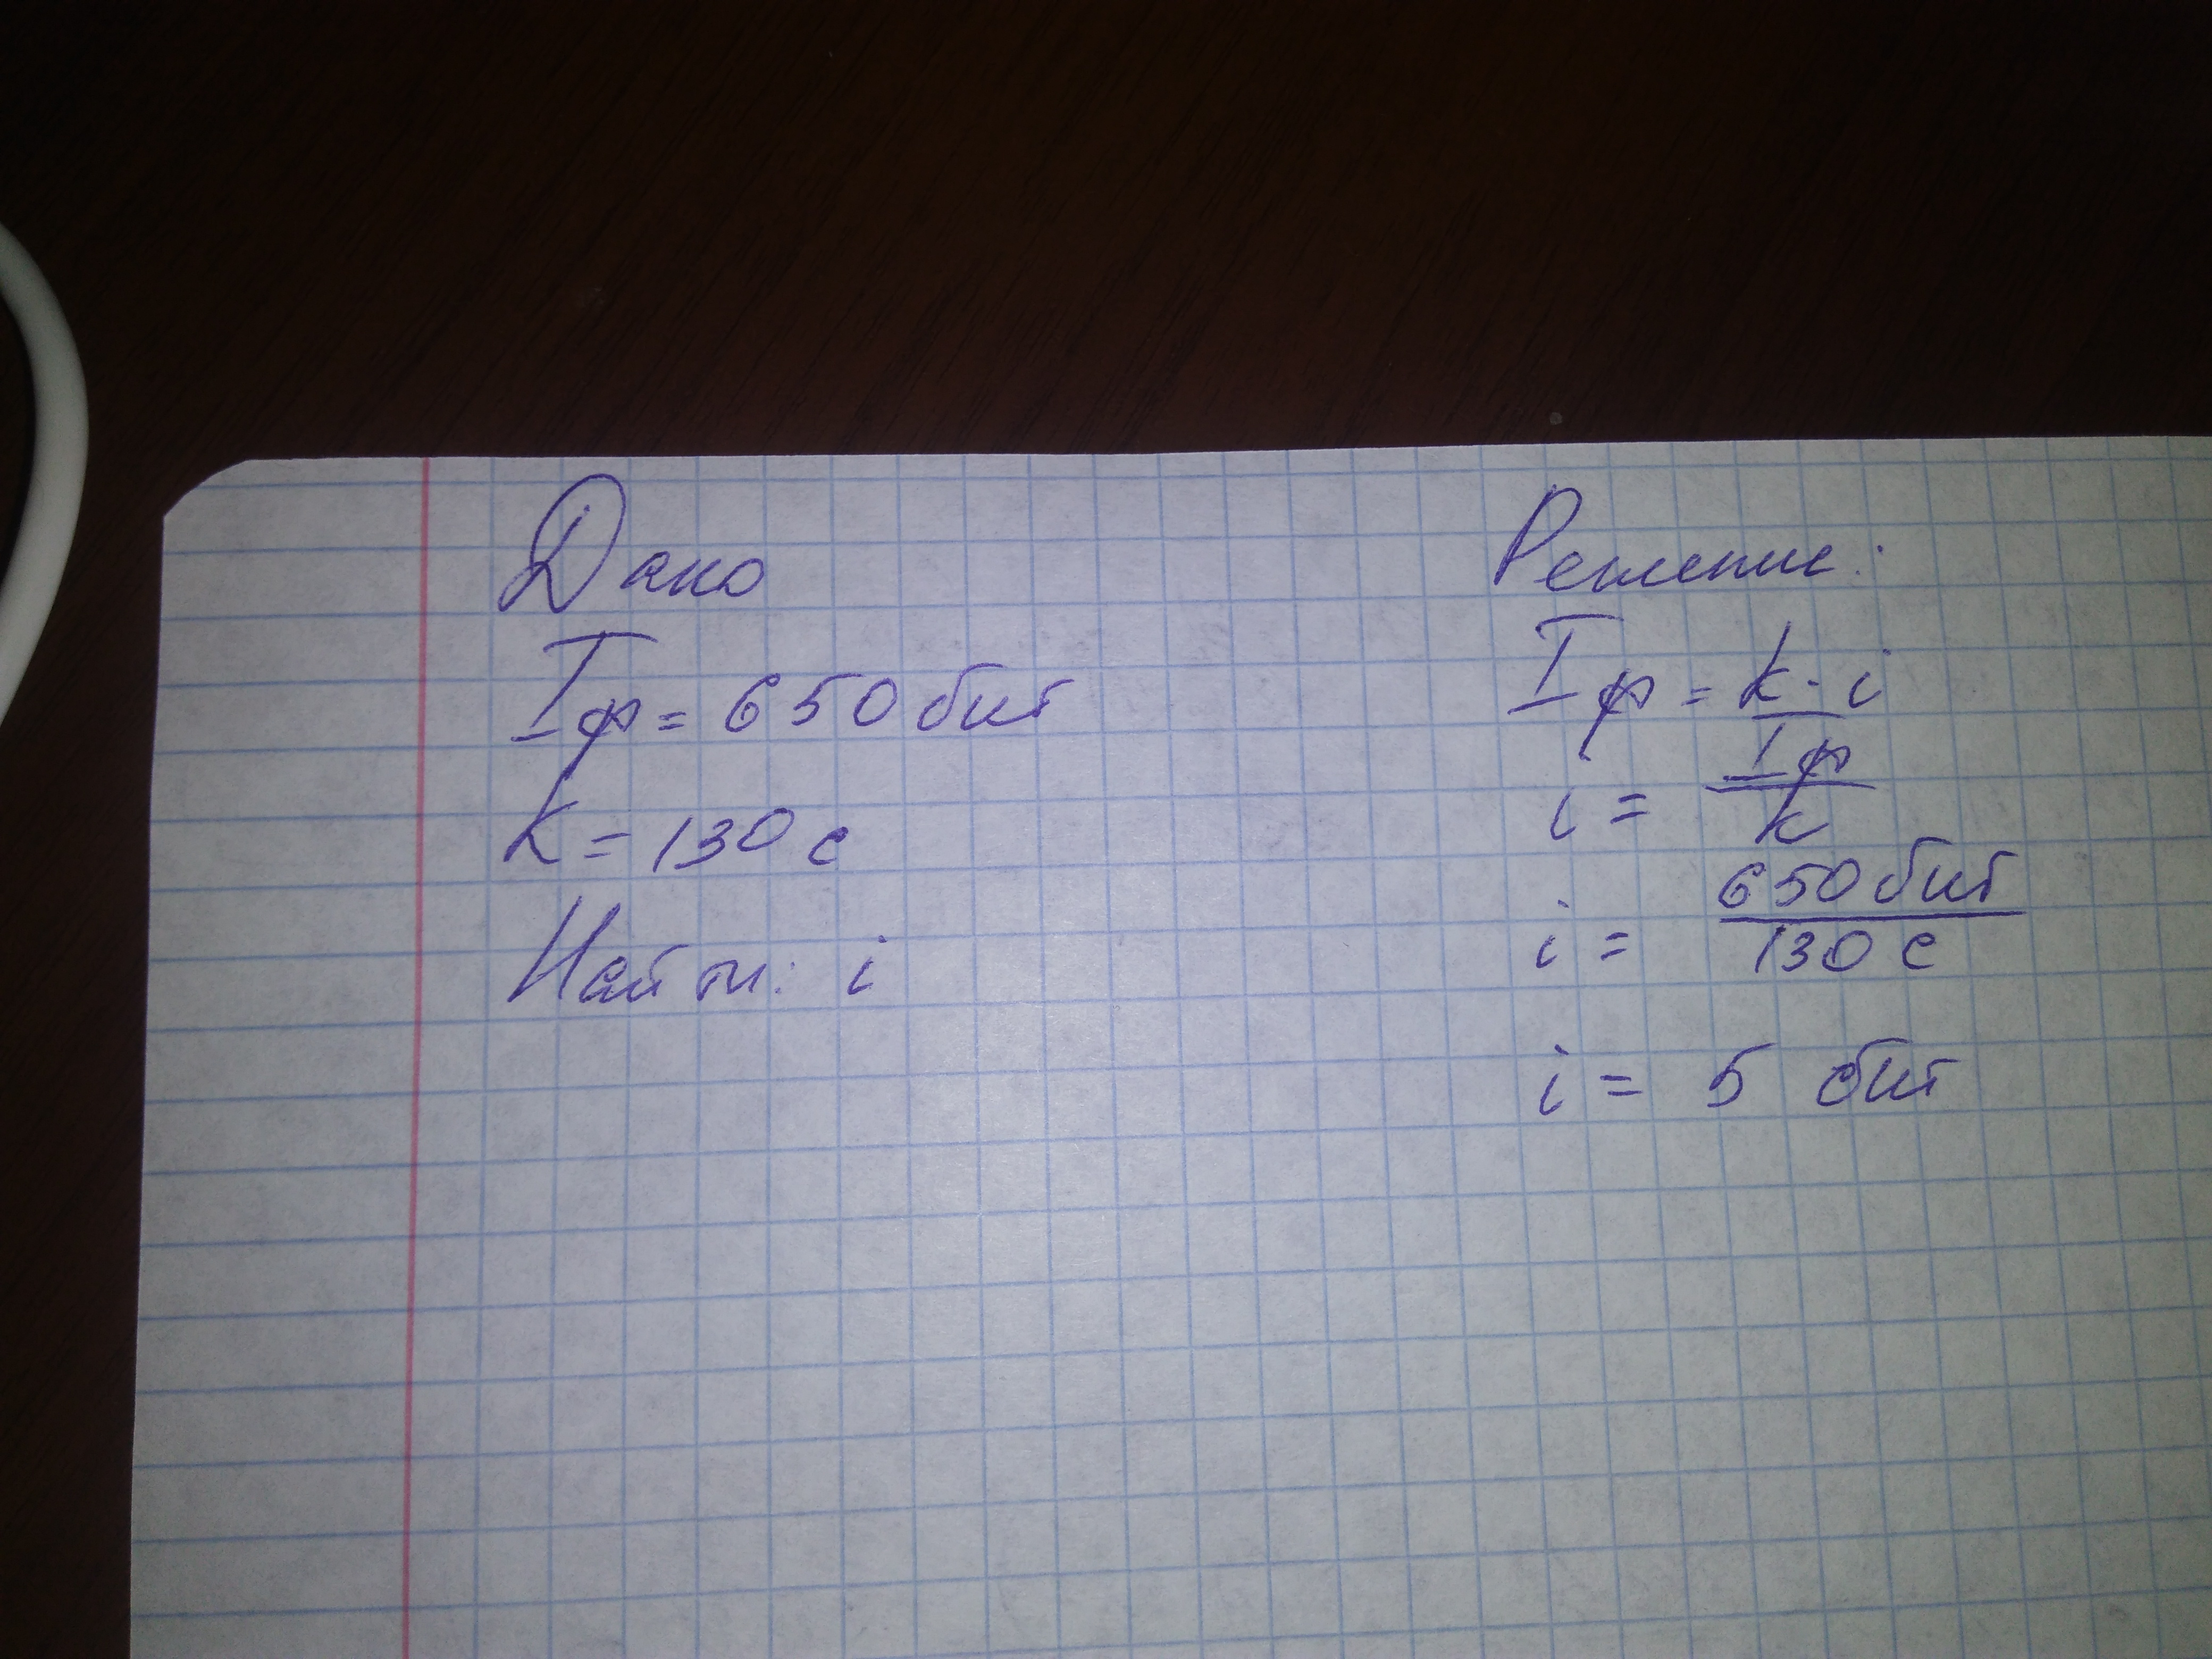 Дано
Iф = 650 бит
K = 130 с
Найти: i
Решение:
Iф = k · i
i = Iф / k
i = 650 бит / 130 с
i = 5 бит